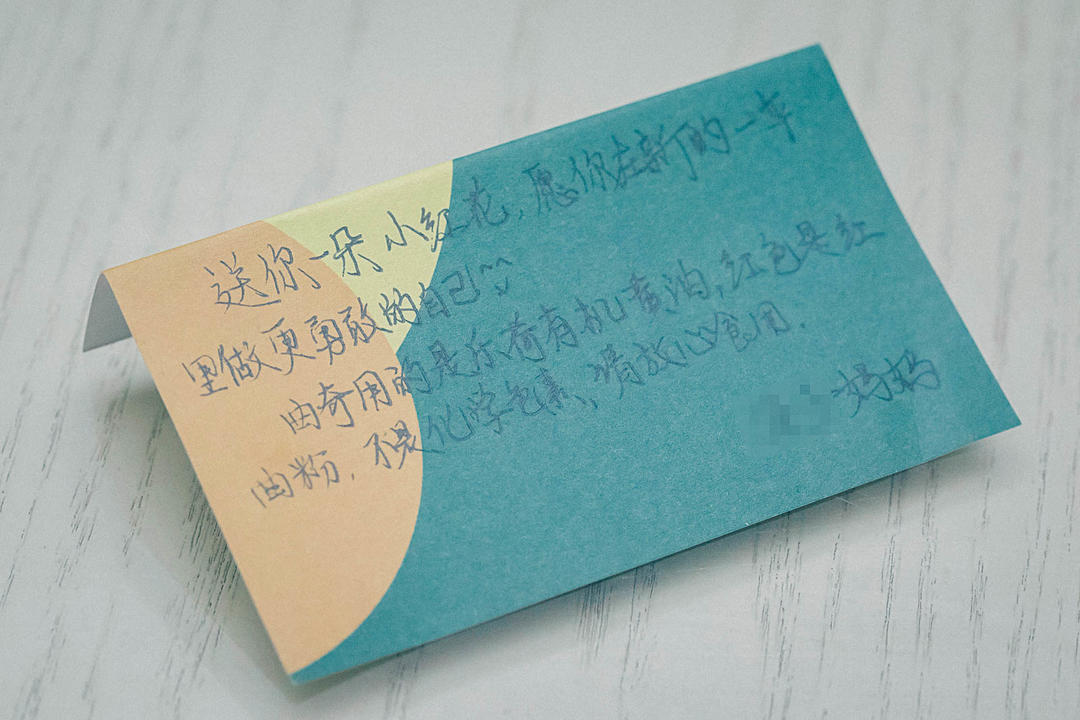 送你一朵小红花,愿你在新的一年
里做更勇敢的自己^^
曲奇用的是乐荷有机黄油,红色是红
曲粉,不是化学色素,请放心食用.
妈妈